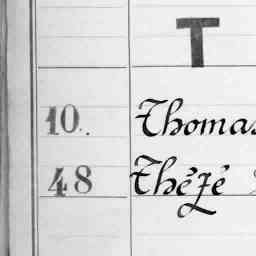 T
10. Thomas
48 Thézé